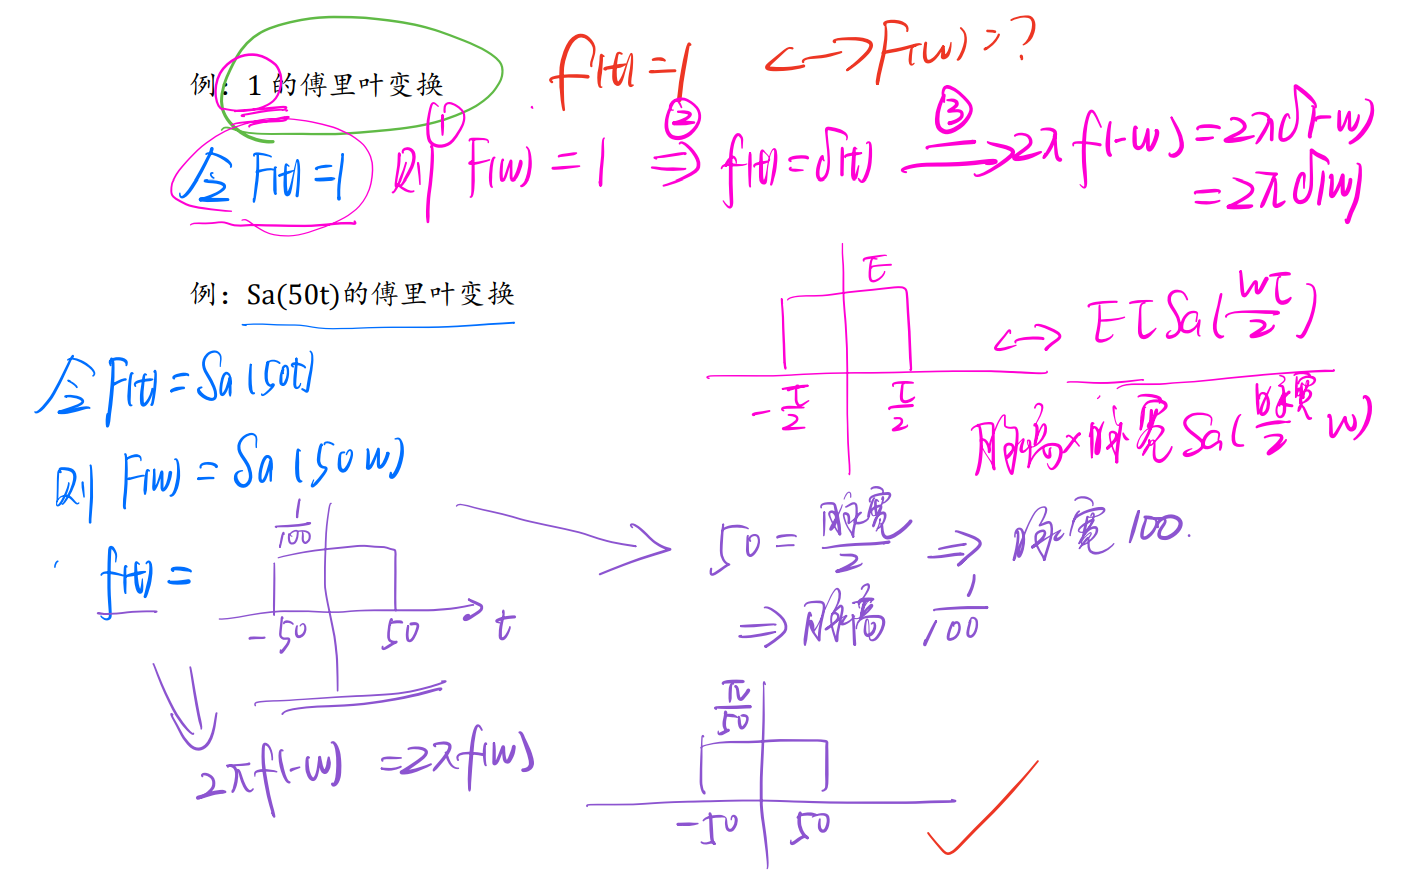 例：1 的傅里叶变换
f(t)=1 <—> F(w)=?
令 F(t)=1 ① 则 F(w)=1 ② ⇒ f(t)=δ(t) ③ ⟹ 2πf(-w)=2πδ(-w)
=2πδ(w)
例：Sa(50t)的傅里叶变换
E
-τ/2 τ/2
<—> EτSa(wτ/2)
脉高×脉宽 Sa(脉宽/2 w)
令 F(t)=Sa(50t)
则 F(w)=Sa(50w)
f(t)=
1/100
-50 50 t
50=脉宽/2 ⇒ 脉宽 100.
⇒ 脉高 1/100
2πf(-w) =2πf(w)
π/50
-50 50